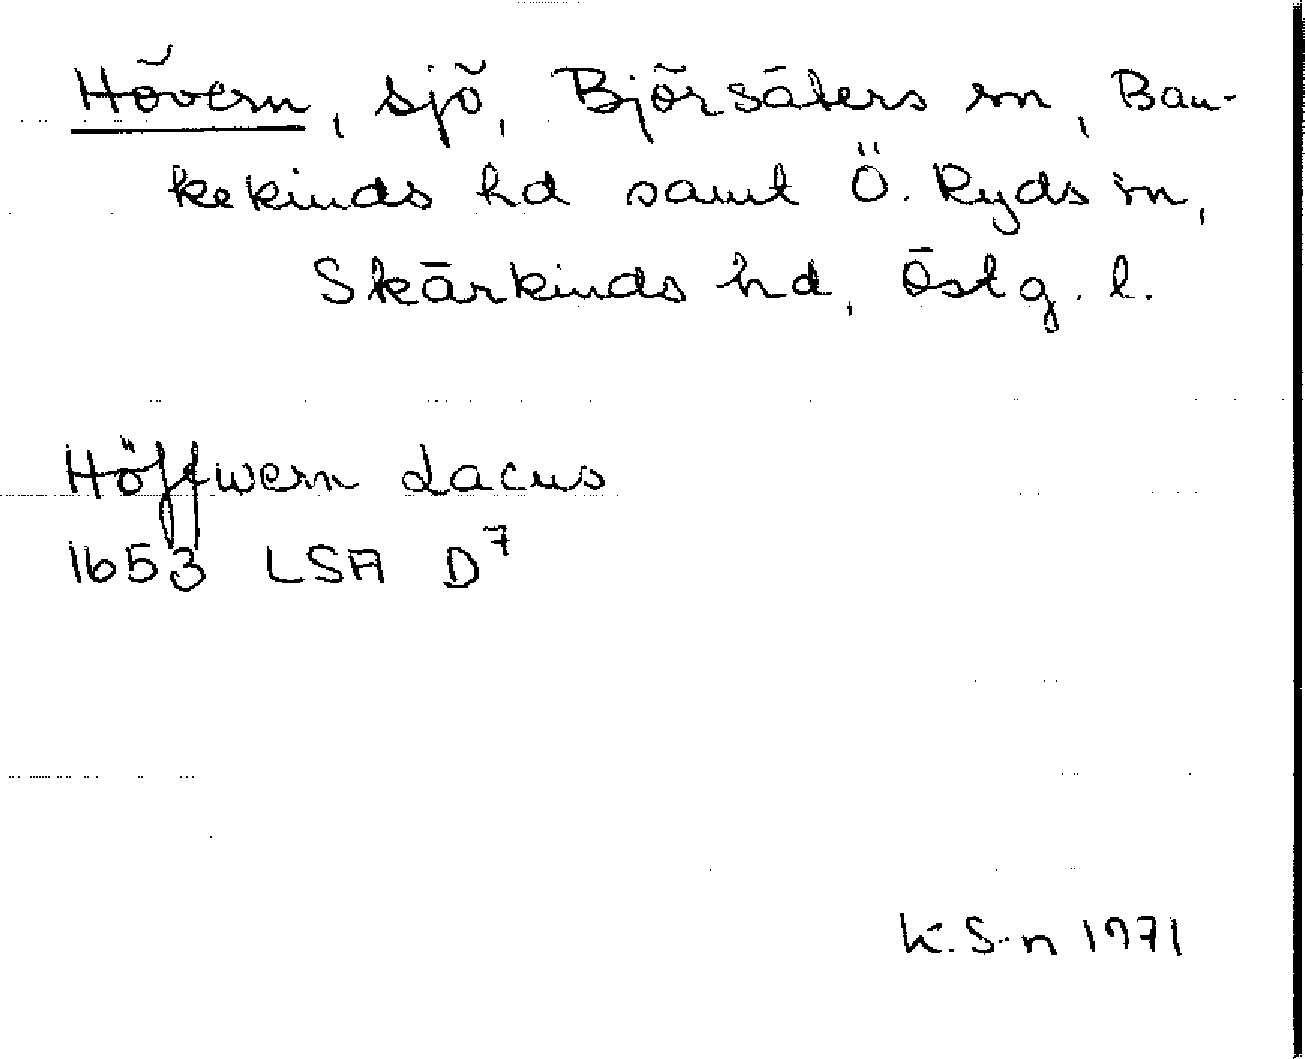 Hövern, sjö, Björsäters sn, Ban-
kekinds hd samt Ö. Ryds sn,
Skärkinds hd, Östg. l.
Höffwern Lacus
1653 LSA D7
K. S-n 1971